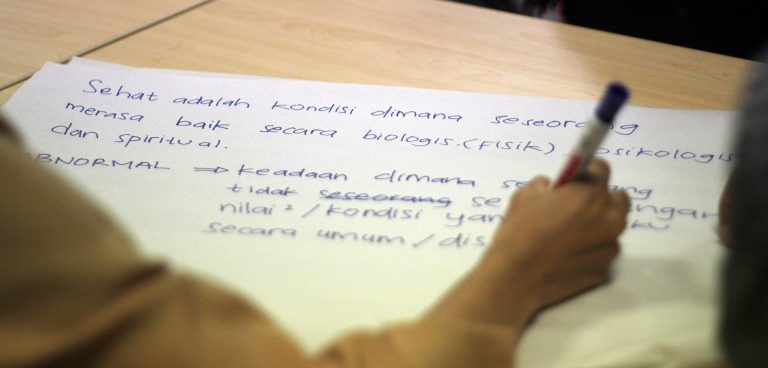 Sehat adalah kondisi dimana seseorang
merasa baik secara biologis (fisik) psikologis
dan spiritual.
ABNORMAL ⇒ keadaan dimana
tidak seseorang
nilai² / kondisi
secara umum /